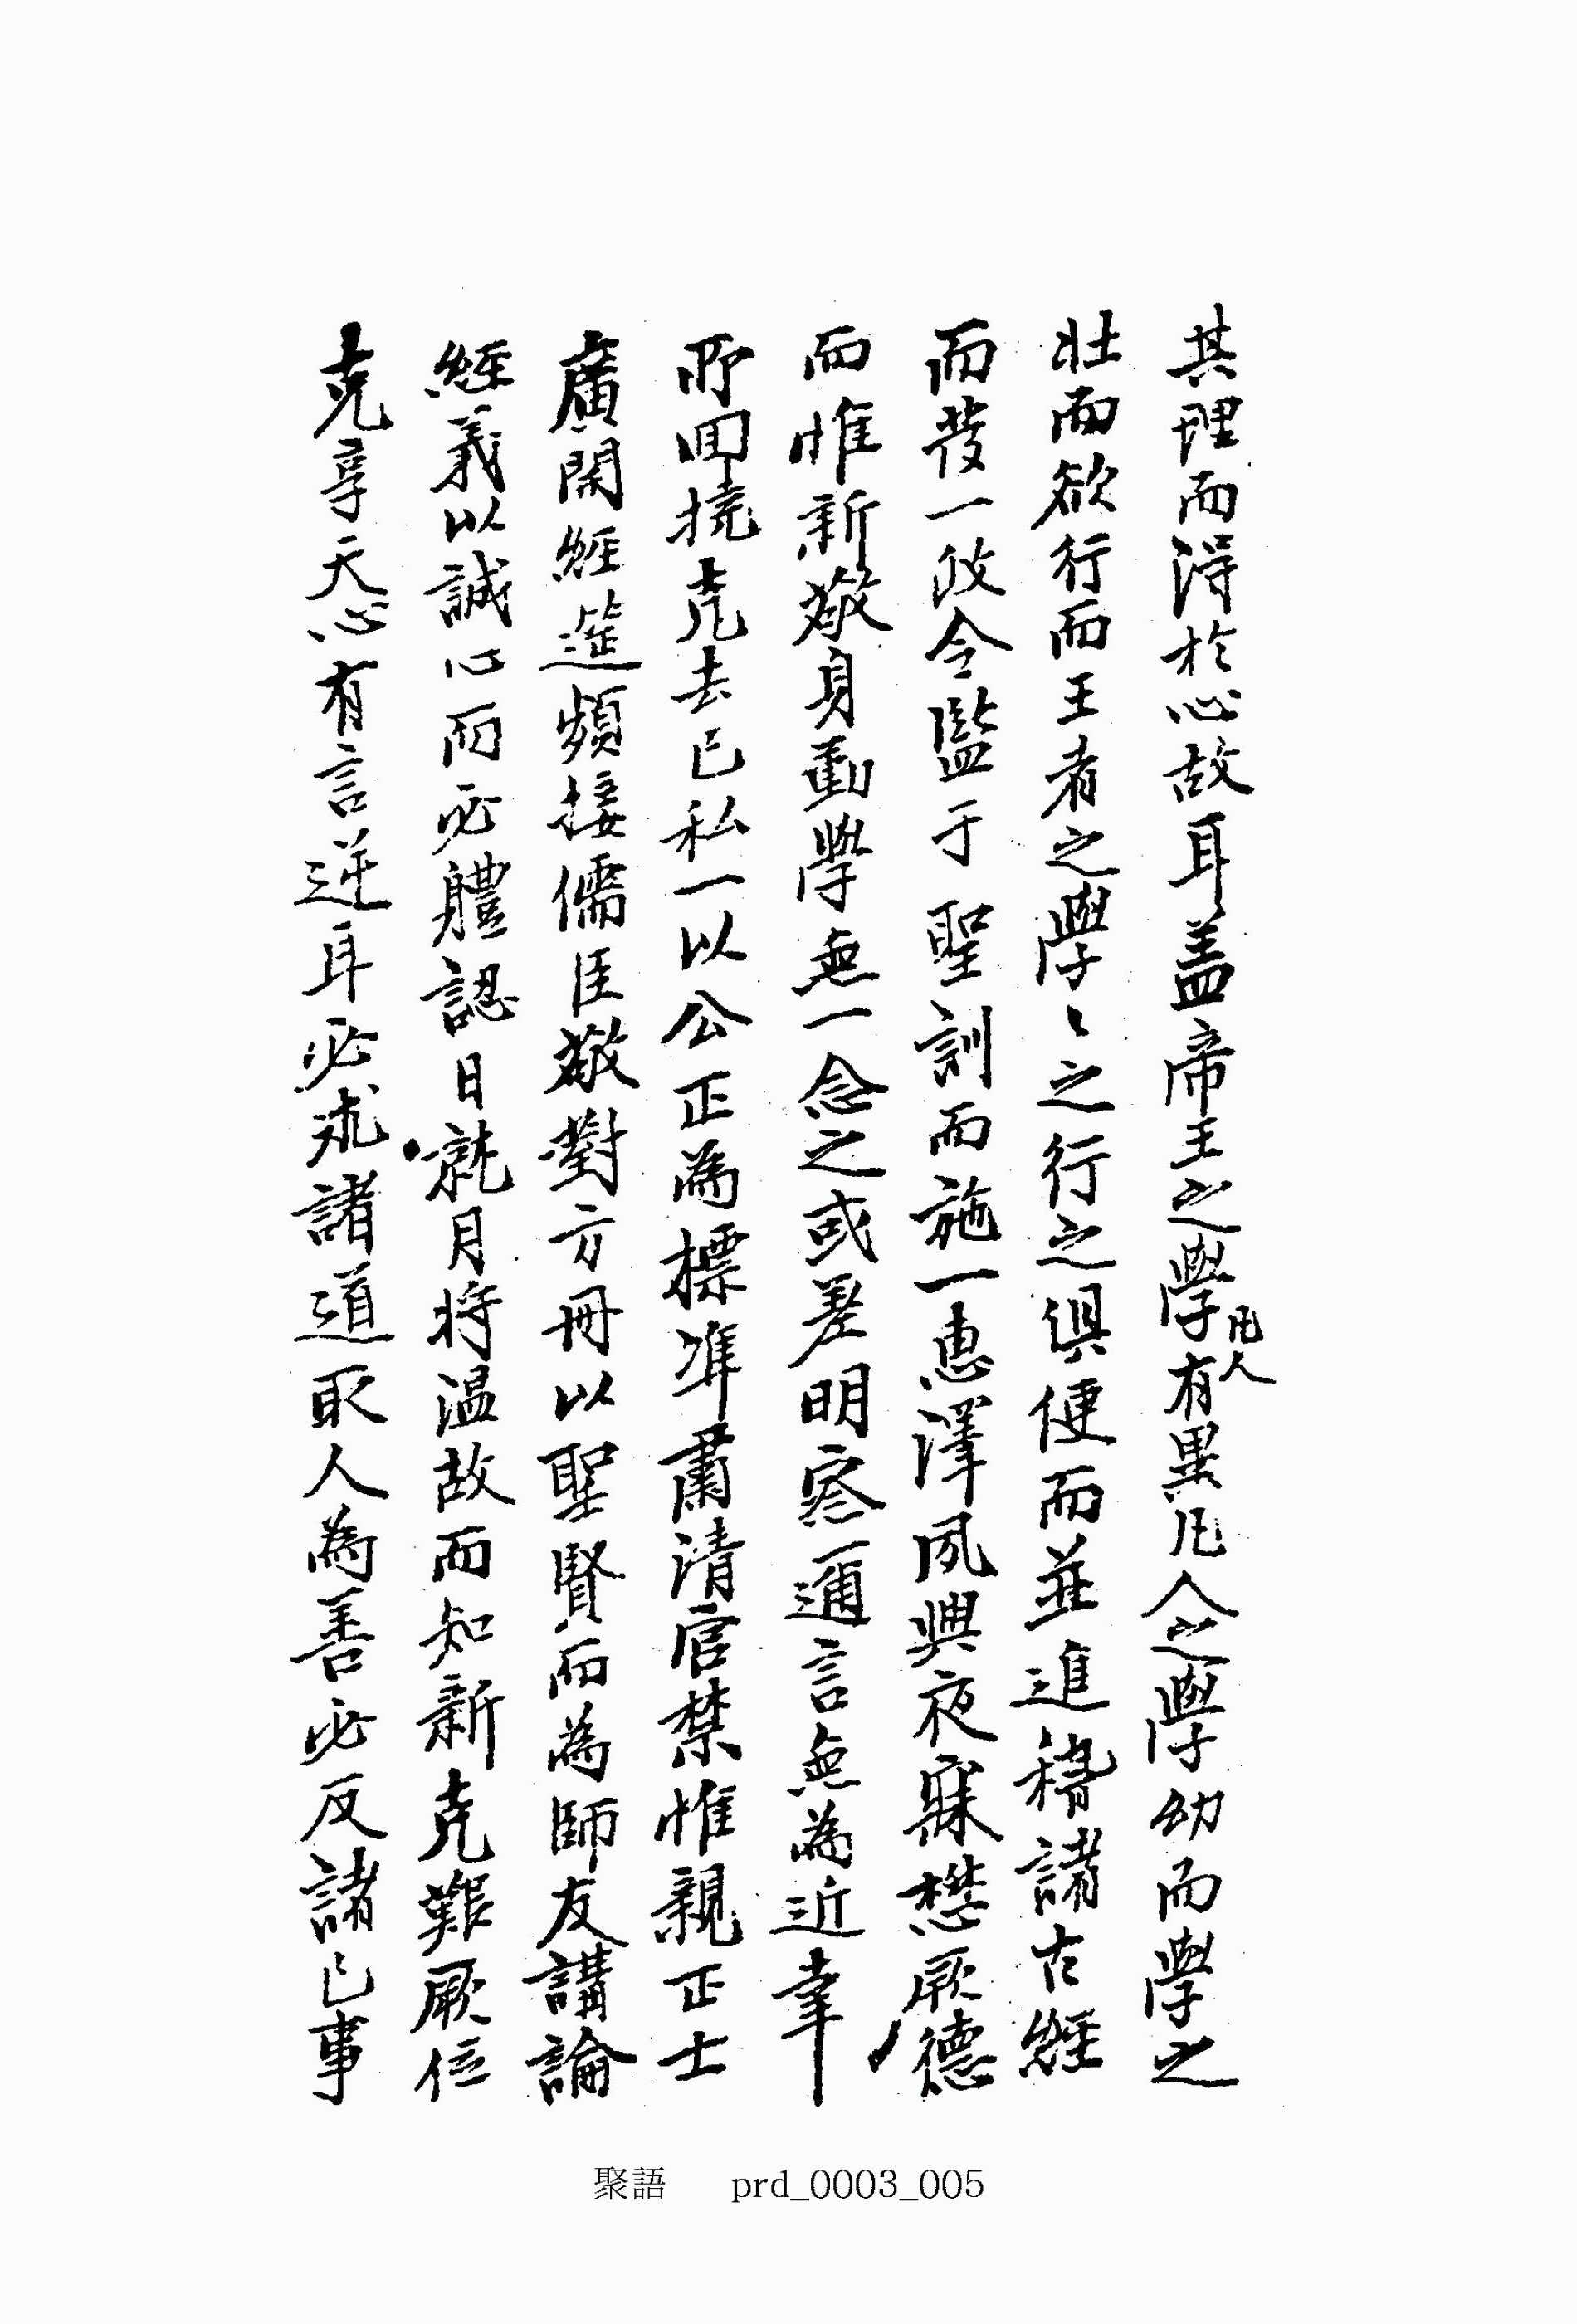 其理而得於心故耳盖帝王之學凡人有異凡人之學幼而學之
壯而欲行而王者之學〻之行之俱便而並進稽諸古經
而發一政令監于聖訓而施一惠澤夙興夜寐懋厥德
而惟新敬身動學無一念之或差明察邇言無為近幸
所回撓克去己私一以公正為標準肅清宮禁惟親正士
廣開經筵頻接儒臣敬對方冊以聖賢而為師友講論
經義以誠心而必體認日就月將温故而知新克艱厥位
克享天心有言逆耳必求諸道取人為善必反諸己事
聚語 prd_0003_005